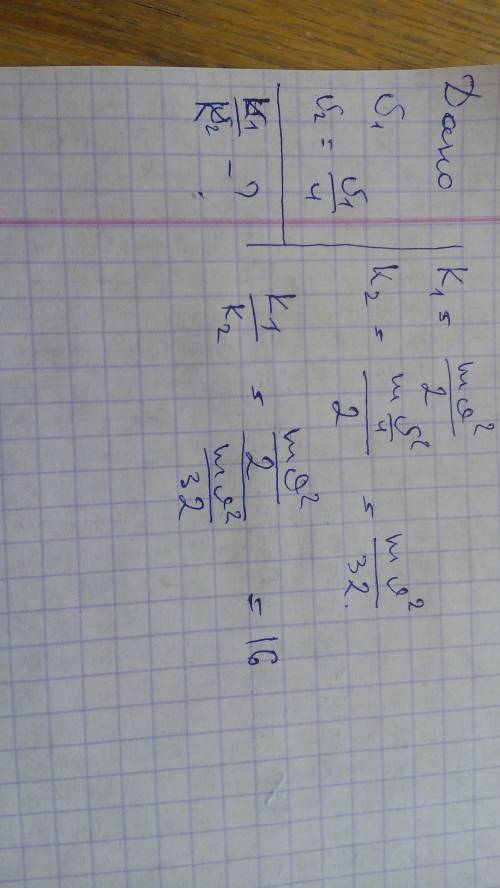 Дано
υ₁
υ₂ = υ₁/4
K₁/K₂ - ?
K₁ = mυ²/2
K₂ = (m υ²/4)/2 = mυ²/32.
K1/K₂ = (mυ²/2)/(mυ²/32) = 16